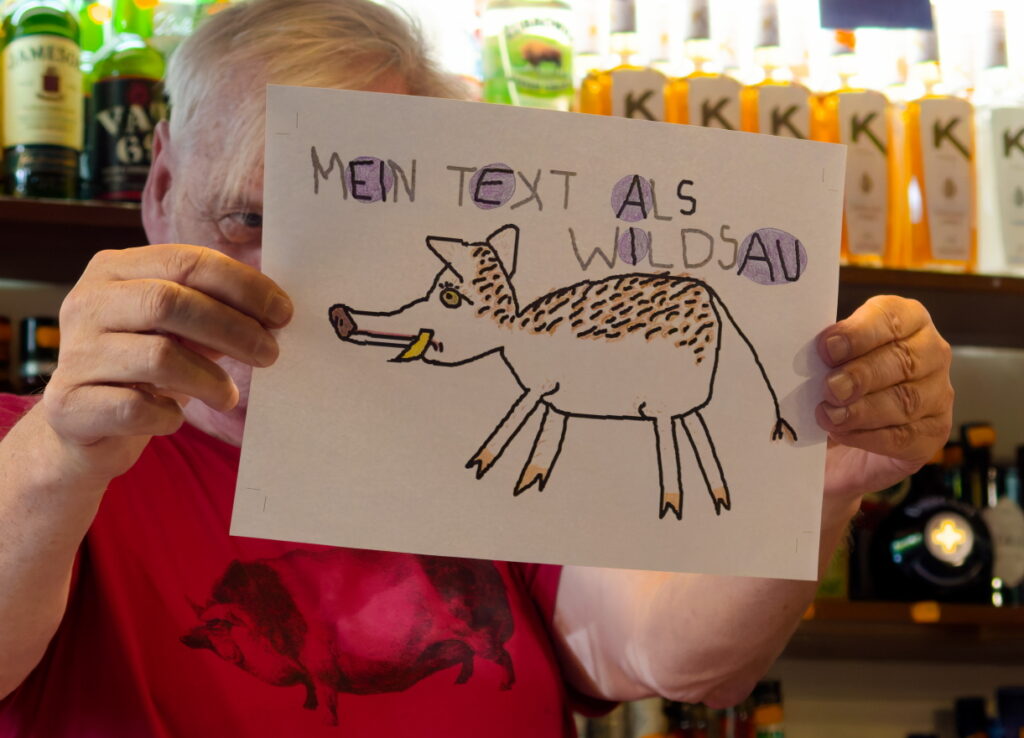 JAMESON
VAT
69
K
K
K
K
K
K
MEIN TEXT ALS
WILDSAU